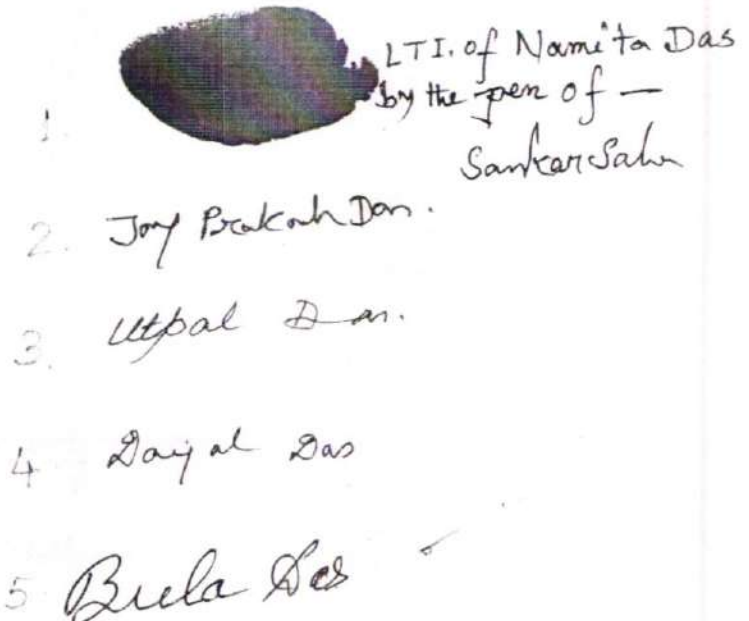 1.
LTI. of Namita Das
by the pen of —
Sankar Saha
2. Joy Prakash Das.
3. Utpal Das.
4 Dayal Das
5 Bula Das